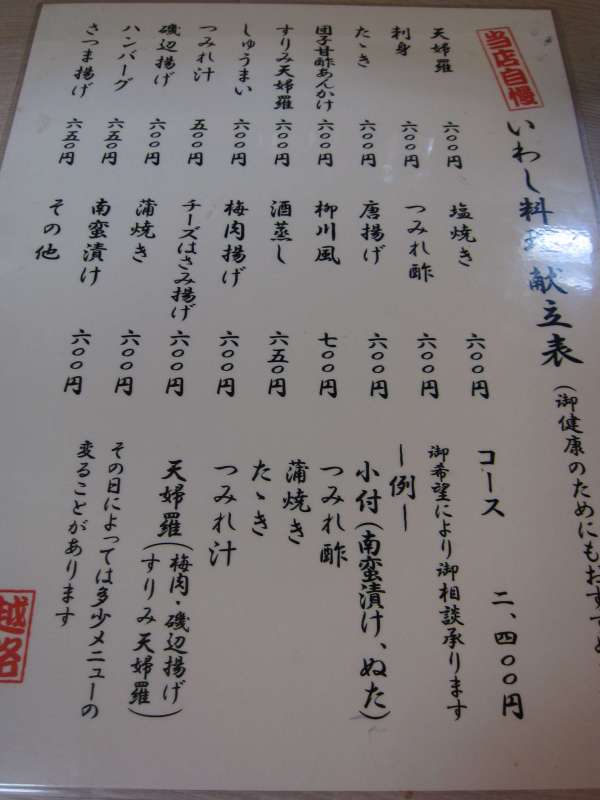 当店自慢
いわし料理献立表
(御健康のためにもおすすめ
天婦羅 六〇〇円
刺身 六〇〇円
たゝき 六〇〇円
団子甘酢あんかけ 六〇〇円
すりみ天婦羅 六〇〇円
しゅうまい 六〇〇円
つみれ汁 五〇〇円
磯辺揚げ 六〇〇円
ハンバーグ 六五〇円
さつま揚げ 六五〇円
塩焼き 六〇〇円
つみれ酢 六〇〇円
唐揚げ 六〇〇円
柳川風 七〇〇円
酒蒸し 六五〇円
梅肉揚げ 六〇〇円
チーズはさみ揚げ 六〇〇円
蒲焼き 六〇〇円
南蛮漬け 六〇〇円
その他
コース 二、四〇〇円
御希望により御相談承ります
ー例ー
小付(南蛮漬け、ぬた)
つみれ酢
蒲焼き
たゝき
つみれ汁
天婦羅(梅肉・磯辺揚げ
すりみ天婦羅)
その日によっては多少メニューの
変ることがあります
越路